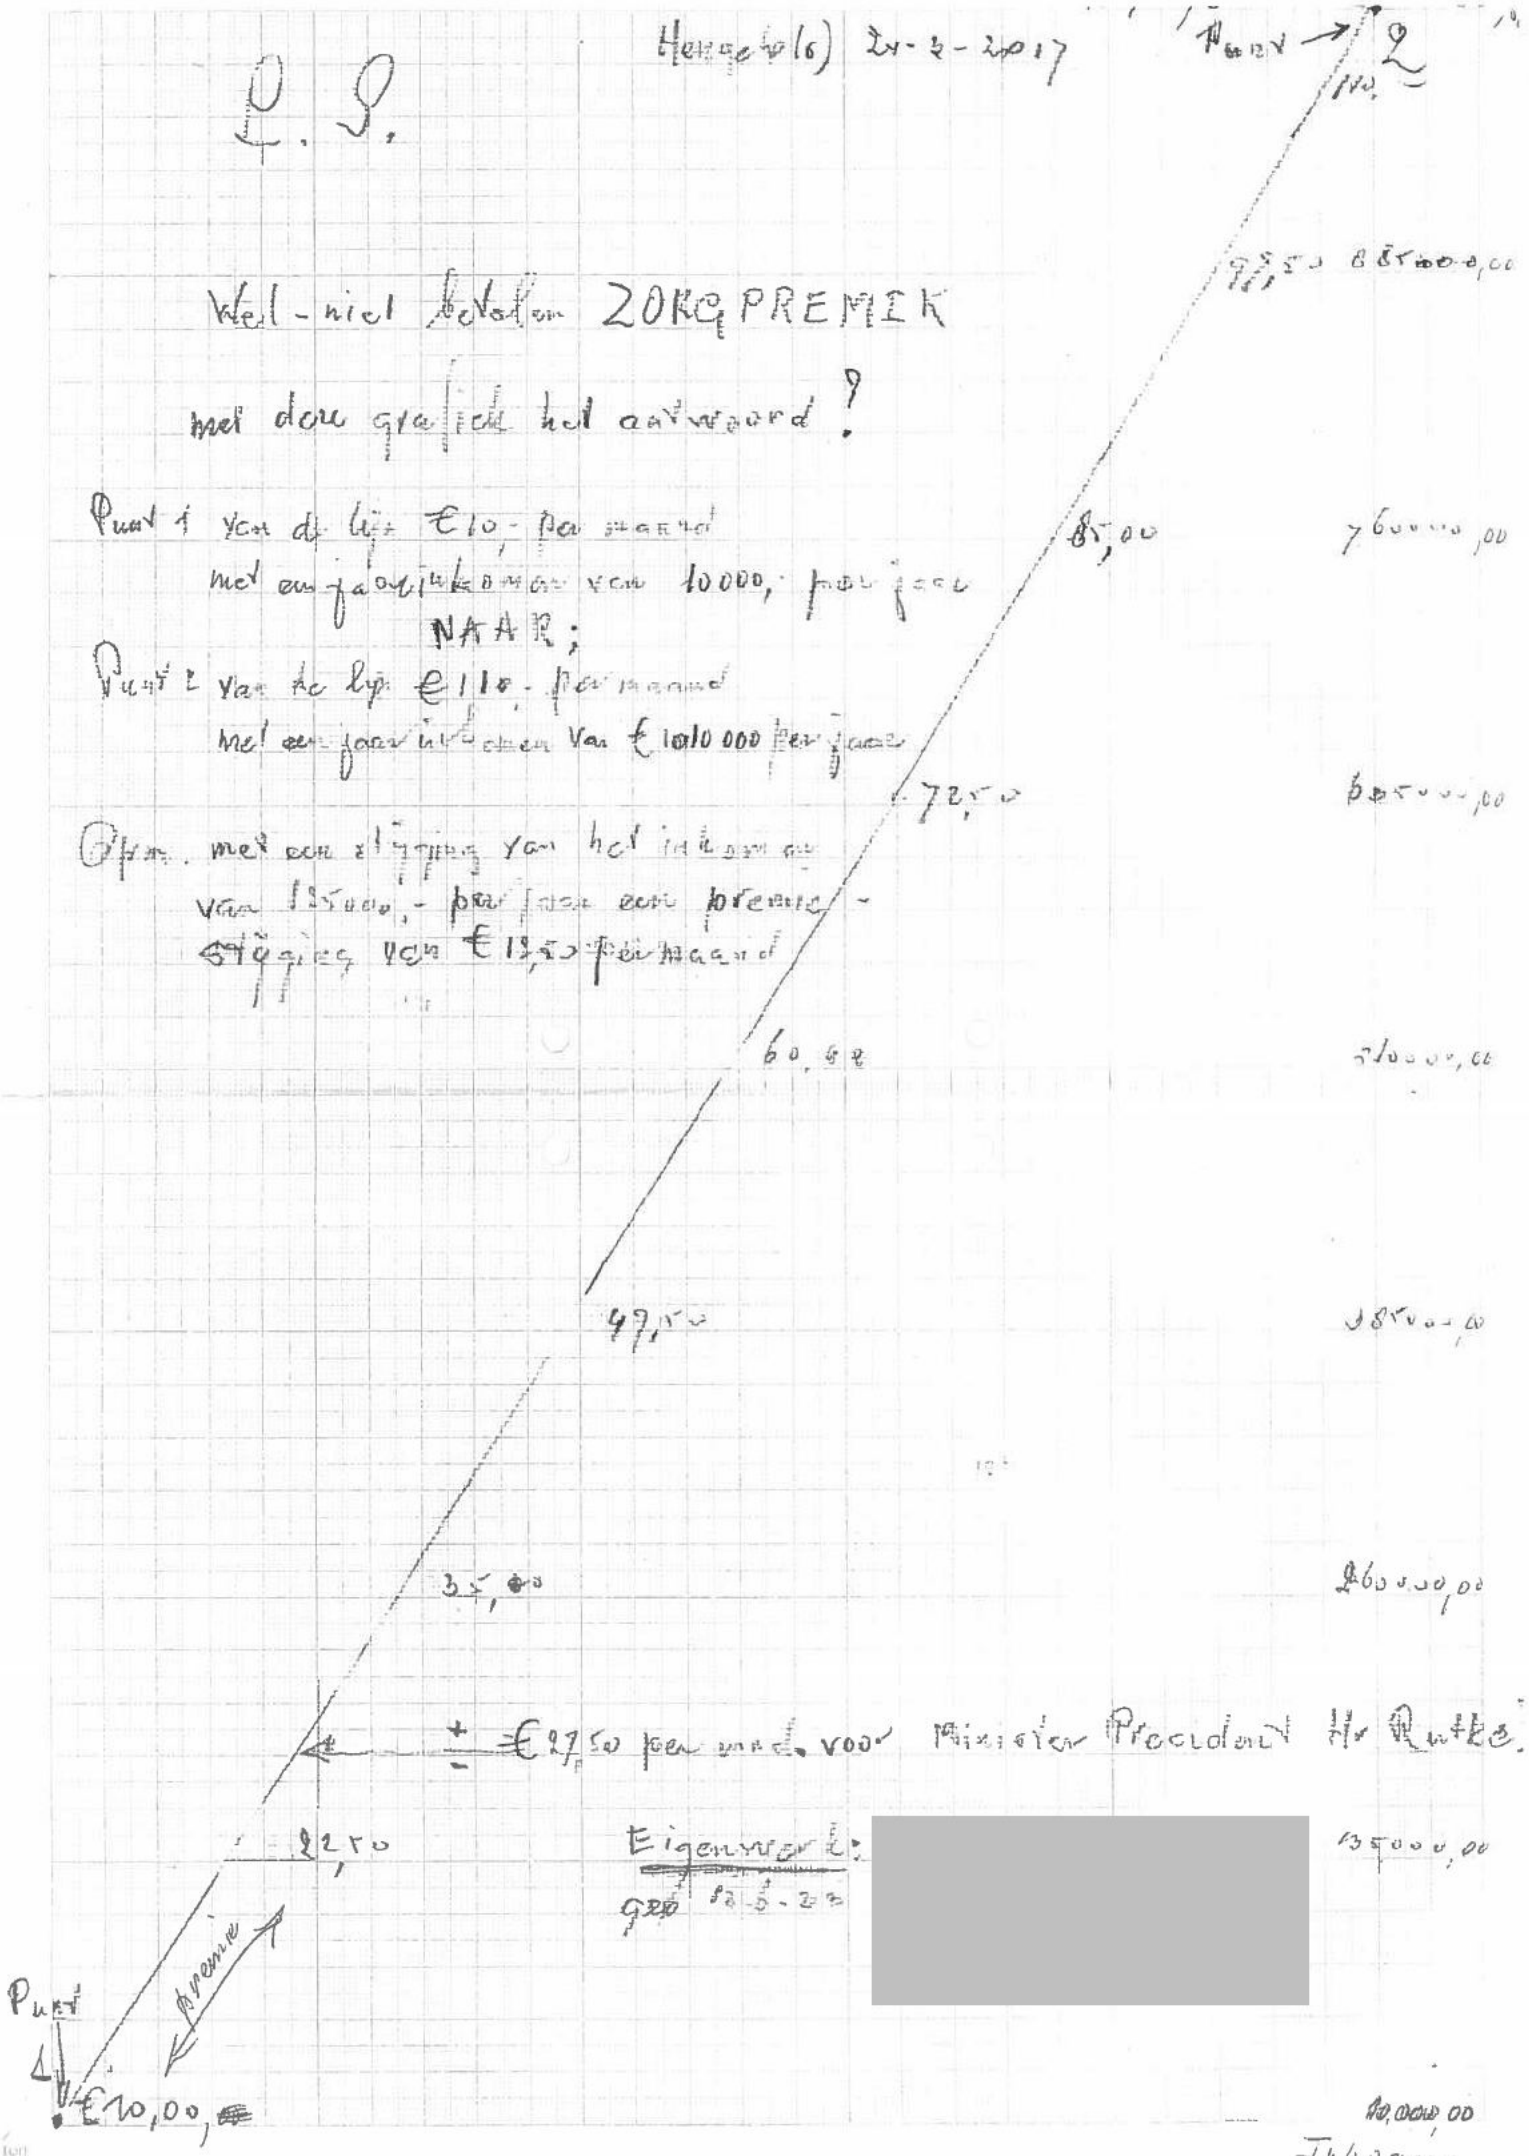 Hengelo(o) 2x-2-2017
Punt → 2
110,=
L. S.
97,50 885000,00
Wel-niet betalen ZORGPREMIE
met deze grafiek het antwoord ?
Punt 1 van de lijn €10,- per maand
85,00 760000,00
met een jaarinkomen van 10000,- per jaar
NAAR:
Punt 2 van de lijn €110,- per maand
met een jaarinkomen van €1010000 per jaar
72,50 635000,00
Opm. met een stijging van het inkomen
van 125000,- per jaar een premie-
stijging van €12,50 per maand
60,00 510000,00
47,50 385000,00
35,00 260000,00
± €27,50 per mnd. voor Minister President Hr Rutte.
22,50 Eigenwerk: 135000,00
premie
Punt
1
€10,00,
10.000,00